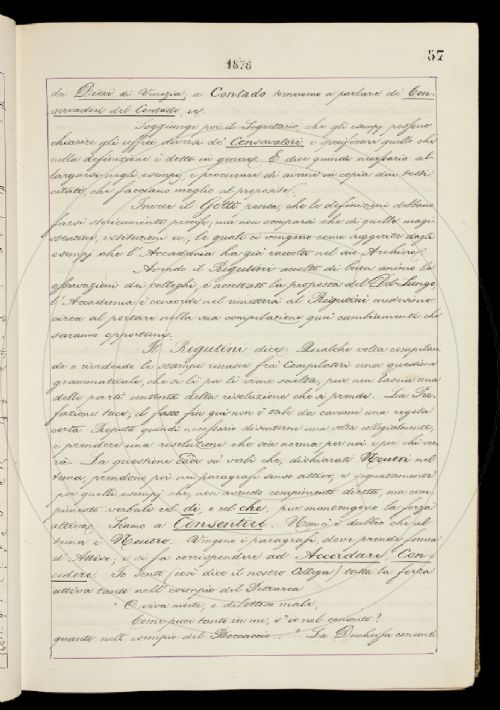 57
1878
dei Dieci di Venezia; a Contado torniamo a parlare di Con-
servadori del Contado ec.
Soggiunge poi il Segretario, che gli esempj possono
chiarire gli uffici diversi di Conservatori, e specificare quello che
nella definizione è detto in genere. E dice quindi necessario al-
largarsi negli esempj, e procurare di averne in copia dai testi
citati, che facciano meglio al proposito.
Invece il Gotti pensa, che le definizioni debbano
farsi storicamente precise, ma non occuparsi che di quelle magi-
strature, istituzioni ec., le quali ci vengono come suggerite dagli
esempj che l'Accademia ha già raccolti nel suo Archivio.
Avendo il Rigutini accolto di buon animo le
osservazioni dei colleghi, è accettata la proposta del Del Lungo,
e l'Accademia è concorde nel rimettersi al Rigutini medesimo
circa al portare nella sua compilazione quei cambiamenti che
saranno opportuni.
Il Rigutini dice: Qualche volta compilan-
do o rivedendo le stampe rinasce fra i Compilatori una questione
grammaticale, che se lì per lì viene sciolta, pur non lascia una
delle parti contenta della risoluzione che si prende. La Pre-
fazione tace; il fatto fin qui non è tale da cavarne una regola
certa. Reputa quindi necessario discuterne una volta collegialmente,
e prendere una risoluzione che sia norma per noi e per chi ver-
rà. La questione cade su' verbi che, dichiarati Neutri nel
tema, prendono poi nei paragrafi senso attivo, e segnatamente
per quelli esempj che, non avendo compimento diretto, ma com-
pimento verbale col di, e col che, pur mantengono la forza
attiva. Siamo a Consentire. Non c'è dubbio che il
tema è Neutro. Vengono i paragrafi, dove prende forma
d'Attivo, e si fa corrispondere ad Accordare, Con-
cedere. Io sento (così dice il nostro Collega) tutta la forza
attiva tanto nell'esempio del Petrarca
"O viva morte, o dilettoso male,
Come puoi tanto in me, s'io nol consento?
quanto nell'esempio del Boccaccio... "La Duchessa consentì